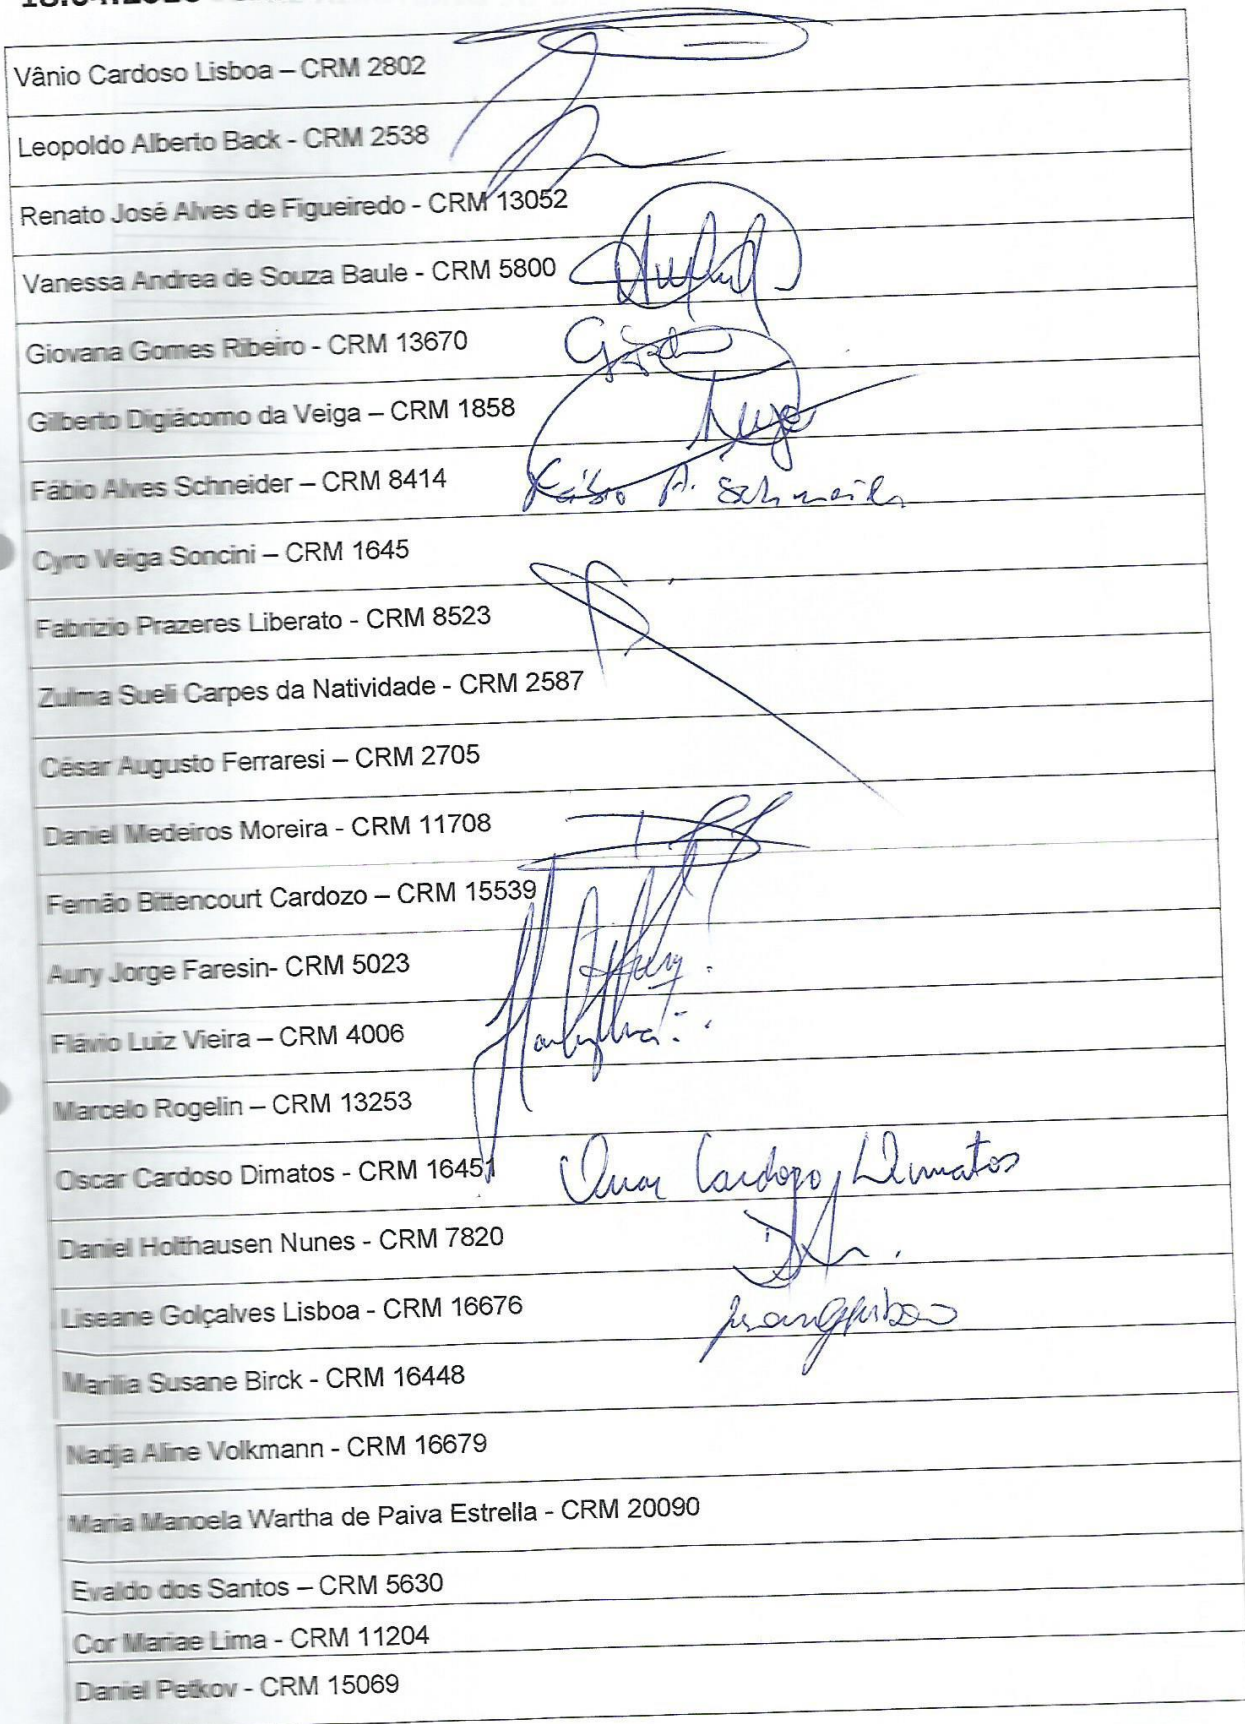 Vânio Cardoso Lisboa – CRM 2802
Leopoldo Alberto Back - CRM 2538
Renato José Alves de Figueiredo - CRM 13052
Vanessa Andrea de Souza Baule - CRM 5800
Giovana Gomes Ribeiro - CRM 13670
Gilberto Digiácomo da Veiga – CRM 1858
Fábio Alves Schneider – CRM 8414 Fábio A. Schneider
Cyro Veiga Soncini – CRM 1645
Fabrizio Prazeres Liberato - CRM 8523
Zulma Sueli Carpes da Natividade - CRM 2587
César Augusto Ferraresi – CRM 2705
Daniel Medeiros Moreira - CRM 11708
Fernão Bittencourt Cardozo – CRM 15539
Aury Jorge Faresin- CRM 5023
Flávio Luiz Vieira – CRM 4006
Marcelo Rogelin – CRM 13253
Oscar Cardoso Dimatos - CRM 16451 Oscar Cardoso Dimatos
Daniel Holthausen Nunes - CRM 7820
Liseane Golçalves Lisboa - CRM 16676
Marilia Susane Birck - CRM 16448
Nadja Aline Volkmann - CRM 16679
Maria Manoela Wartha de Paiva Estrella - CRM 20090
Evaldo dos Santos – CRM 5630
Cor Mariae Lima - CRM 11204
Daniel Petkov - CRM 15069